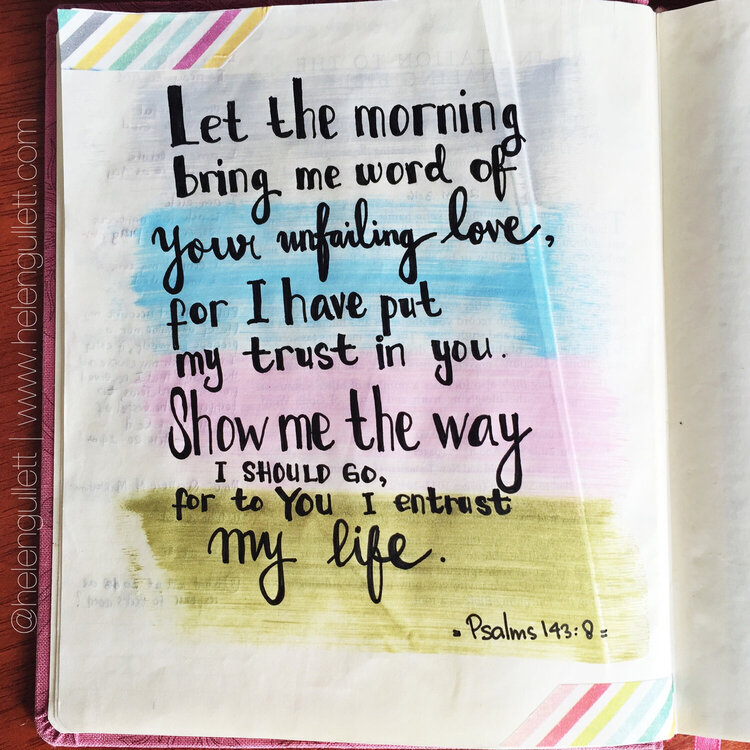 Let the morning
bring me word of
your unfailing love,
for I have put
my trust in you.
Show me the way
I SHOULD GO,
for to You I entrust
my life.
= Psalms 143:8 =
@helengullett | www.helengullett.com